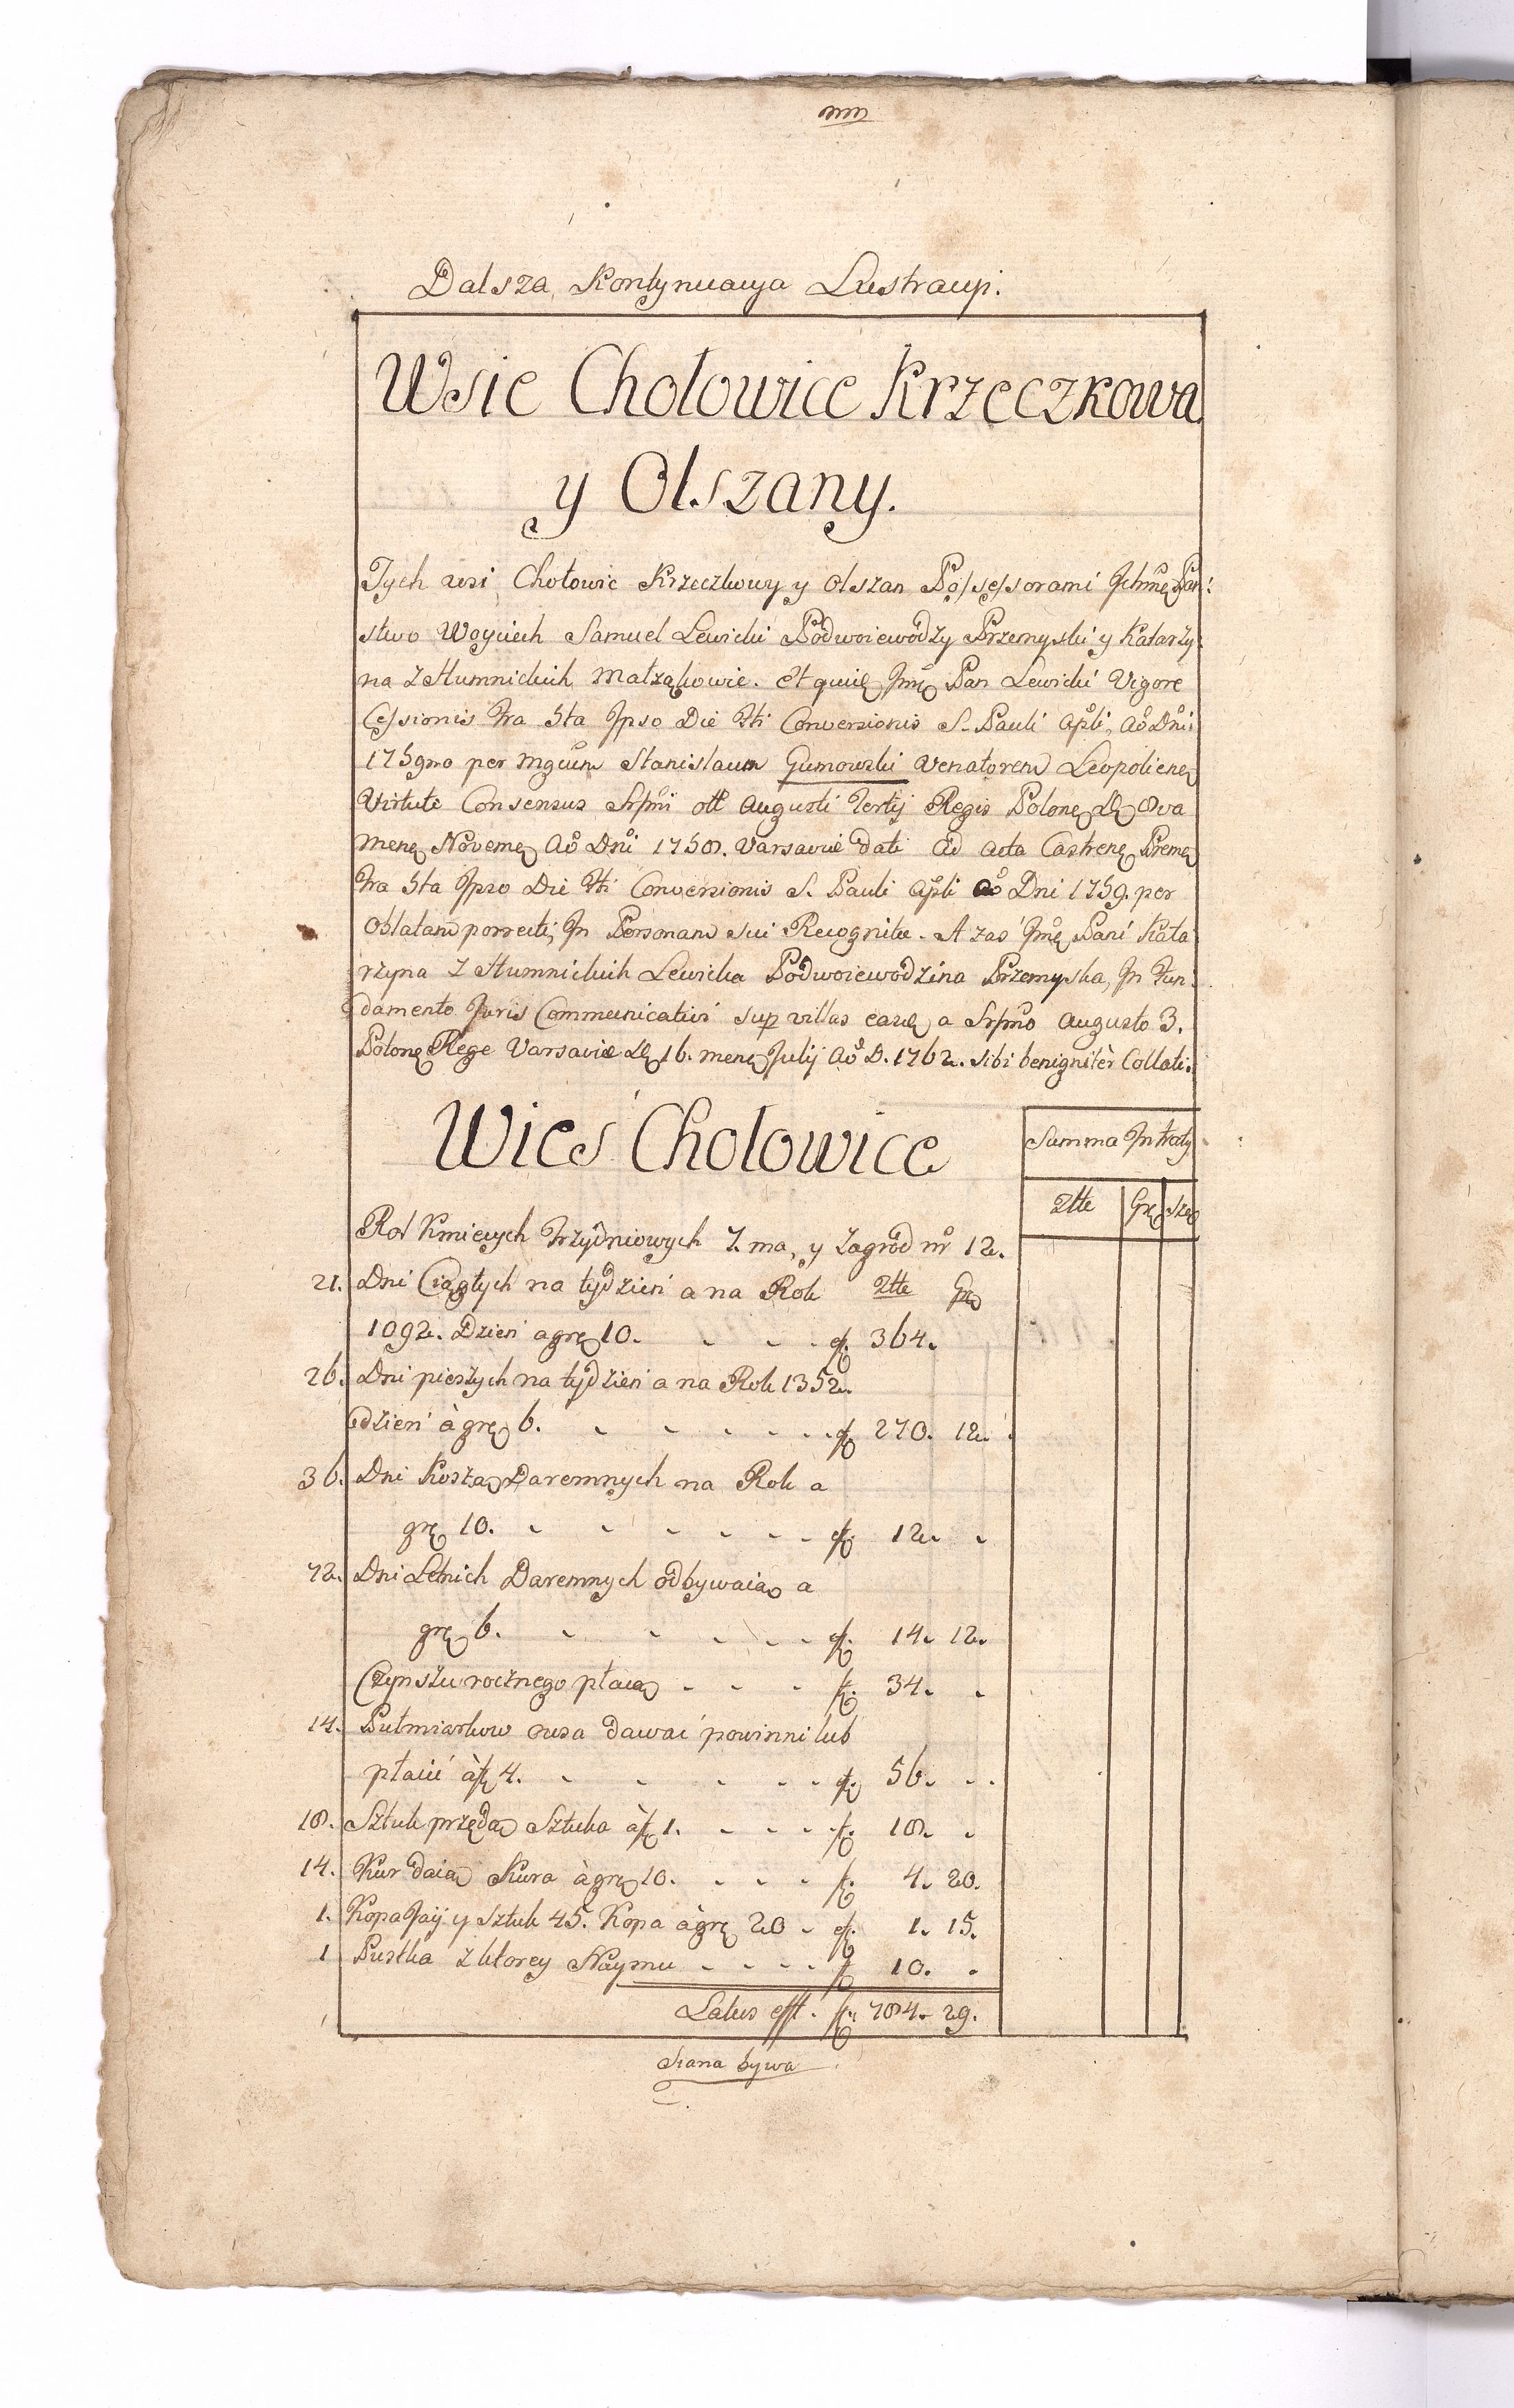 Dalsza Kontynuacya Lustracyi.
Wsie Chołowice Krzeczkowa
y Olszany.
Tych wsi Chołowic Krzeczkowy y Olszan Possessorami Ichmę Pań:
stwo Woyciech Samuel Lewicki Podwoiewodzy Przemyski y Katarzy:
na z Humnickich Małżąkowie. et quię Jmę Pan Lewicki Vigore
Cessionis Fra 5ta Ipso Die Fti Conversionis S. Pauli Apli, Ao Dni
1759no per Mgcum Stanislaum Gumowski Venatorem Leopolienę
Virtute Consensus Srpmi olt Augusti Tertij Regis Polonę Dę 8va
menę Novemę Ao Dni 1758. Varsaviæ dati ad acta Castrenę Premę
Fra 5ta Ipso Die Fti Conversionis S. Pauli Apli Ao Dni 1759. per
Oblatam porrecti, In Personam sui Recognitæ. A zaś Jmę Pani Kata
rzyna z Humnickich Lewicka Podwoiewodzina Przemyska, In Fun:
damento Juris Communicativi sup villas easę a Srpmo Augusto 3.
Polonę Rege Varsaviæ Dę 16. menę Julij Ao D. 1762. sibi benignitèr Collati.
Wieś Chołowice
Summa Intraty
Złłe Grę Szę
Rol Kmiecych Trzydniowych 7.ma, y Zagrod nr 12.
21. Dni Ciągłych na tydzień a na Rok Złłe Grę
1092. Dzień a grę 10. - - - f. 364.
26. Dni pieszych na tydzień a na Rok 1352.
dzień à grę 6. - - - - - f. 270. 12.
36. Dni Koszą Daremnych na Rok a
grę 10. - - - - - - f. 12. -
72. Dni Letnich Daremnych odbywaią a
grę 6. - - - - - f. 14. 12.
Czynszu rocznego płacą - - - f. 34. -
14. Pułmiarkow owsa dawać powinni lub
płacić à f 4. - - - - - f. 56. - -
18. Sztuk przędą Sztuka à f 1. - - - - f. 18. -
14. Kur daią Kura à grę 10. - - - f. 4. 20.
1. Kopa Jaij y Sztuk 45. Kopa à grę 20 - f. 1. 15.
1 Pustka z ktorey Naymu - - - - f 10. -
Latus efft. f. 784. 29.
Siana bywa